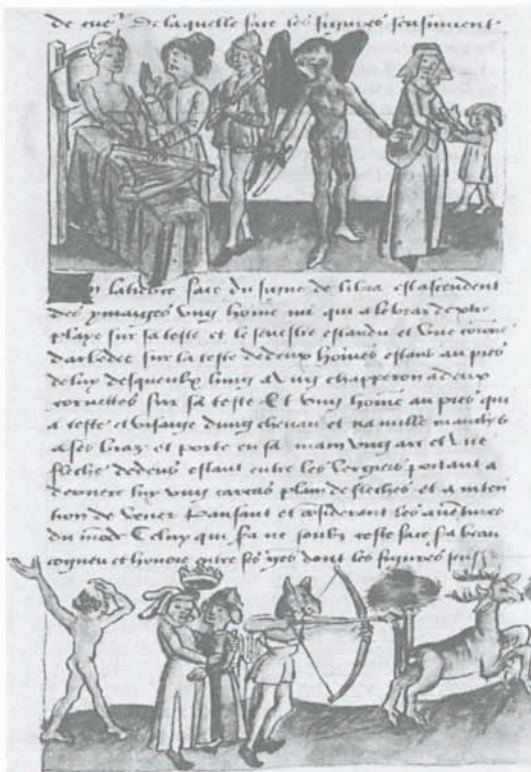 de cuer De laquelle face les figures sensuiuent
En la tierce face du signe de libra est ascendent
des ymaiges vng home nu qui a le bras dextre
playe sur sa teste et le senestre estandu et vne corone
sur la teste de deux homes estans au pres
de luy desqueulx lung a vng chapperon a deux
cornettes sur sa teste Et vng home au pres qui
a teste et visaige dung cheual et na nulle manches
a ses braz et porte en sa main vng arc et vne
fleche dedens estant entre les vergiers portant a
derriere luy vng carcas plain de fleches et a inten
tion de vener Pansant et considerant les auentures
du mode Celuy qui sa ne soubz ceste face sa beau
cogneu et honore entre ses dont les figures sens